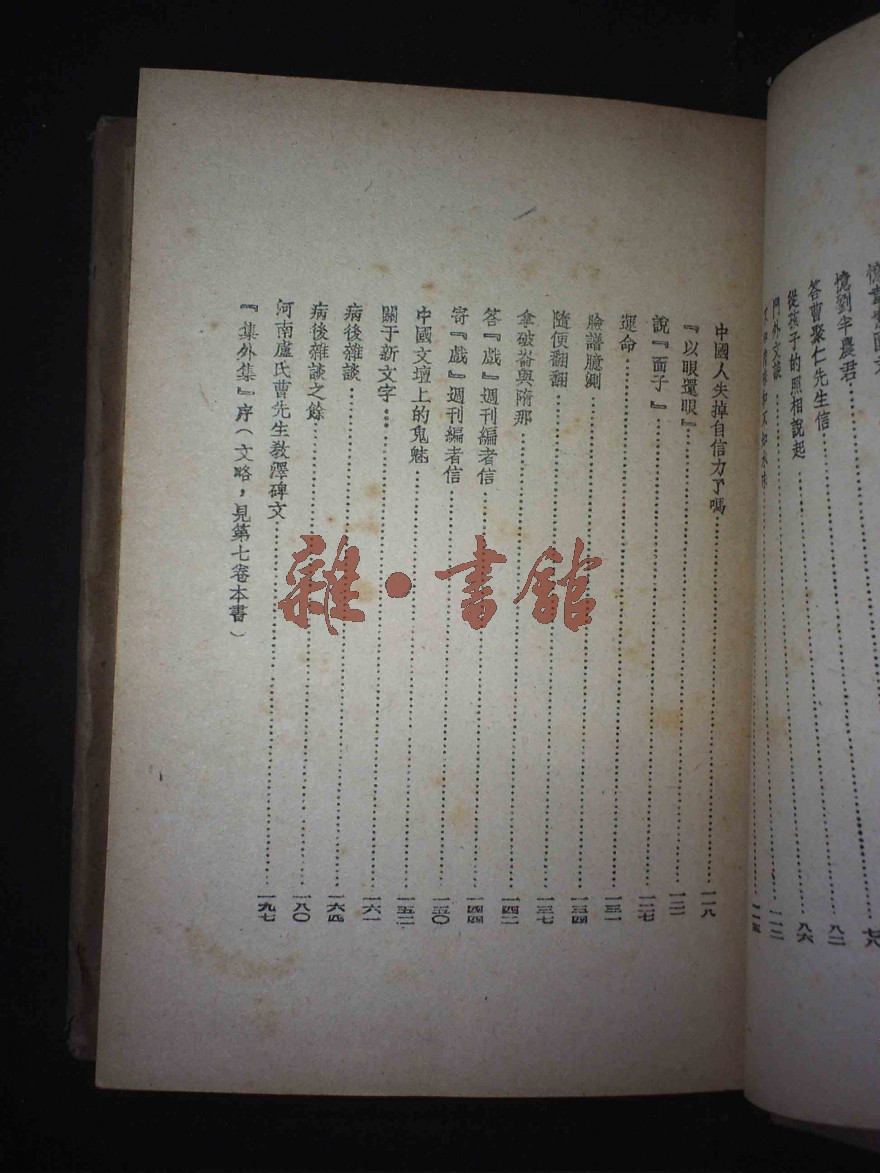 憶劉半農君……七八
答曹聚仁先生信……八二
從孩子的照相說起……八六
門外文談……
中國人失掉自信力了嗎……一一八
『以眼還眼』……一二一
說『面子』……一二七
運命……一三一
臉譜臆測……一三四
隨便翻翻……一三七
拿破崙與隋那……一四二
答『戲』週刊編者信……一四四
寄『戲』週刊編者信……一五〇
中國文壇上的鬼魅……一五二
關于新文字……一六一
病後雜談……一六四
病後雜談之餘……一八〇
河南盧氏曹先生教澤碑文……一九七
『集外集』序（文略，見第七卷本書）
雜·書館